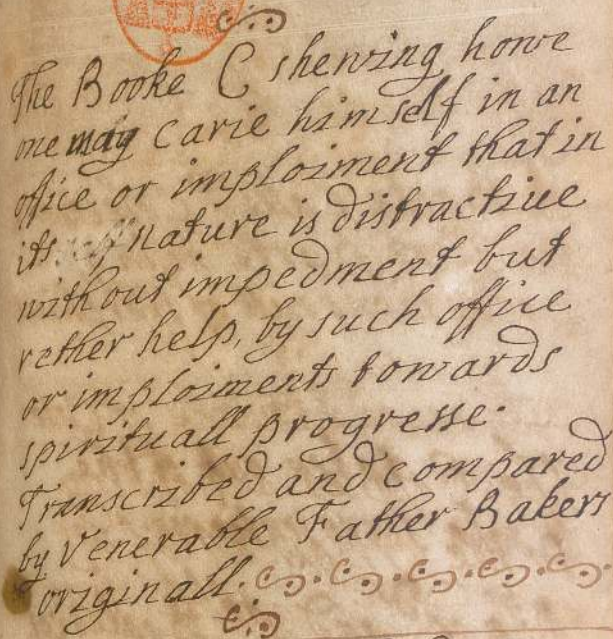 The Booke C shewing howe
one may carie himself in an
office or imploiment that in
its nature is distractiue
without impedment but
rether help, by such office
or imploiments towards
spirituall progresse.
Transcribed and compared
by Venerable Father Bakers
originall.